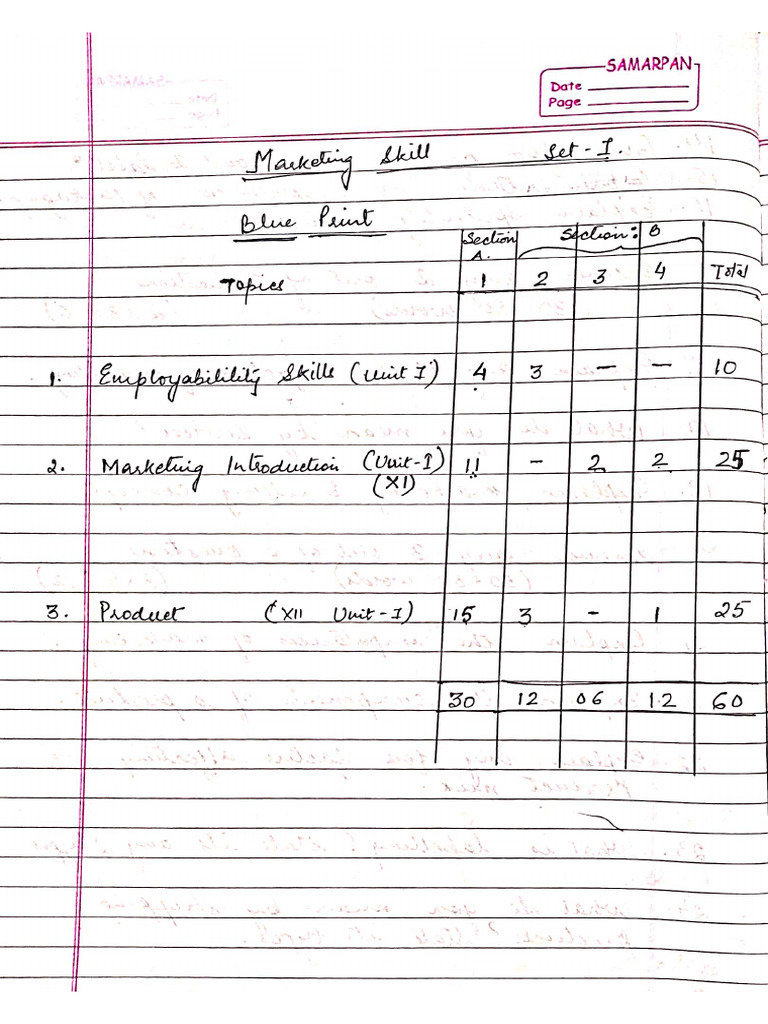 SAMARPAN
Date
Page
Marketing Skill Set - I.
Blue Print
Section A. Section: B
Topics 1 2 3 4 Total
1. Employabilility Skills (Unit I) 4 3 - - 10
2. Marketing Introduction (Unit-I) 11 - 2 2 25
(XI)
3. Product (XII Unit-I) 15 3 - 1 25
30 12 06 12 60